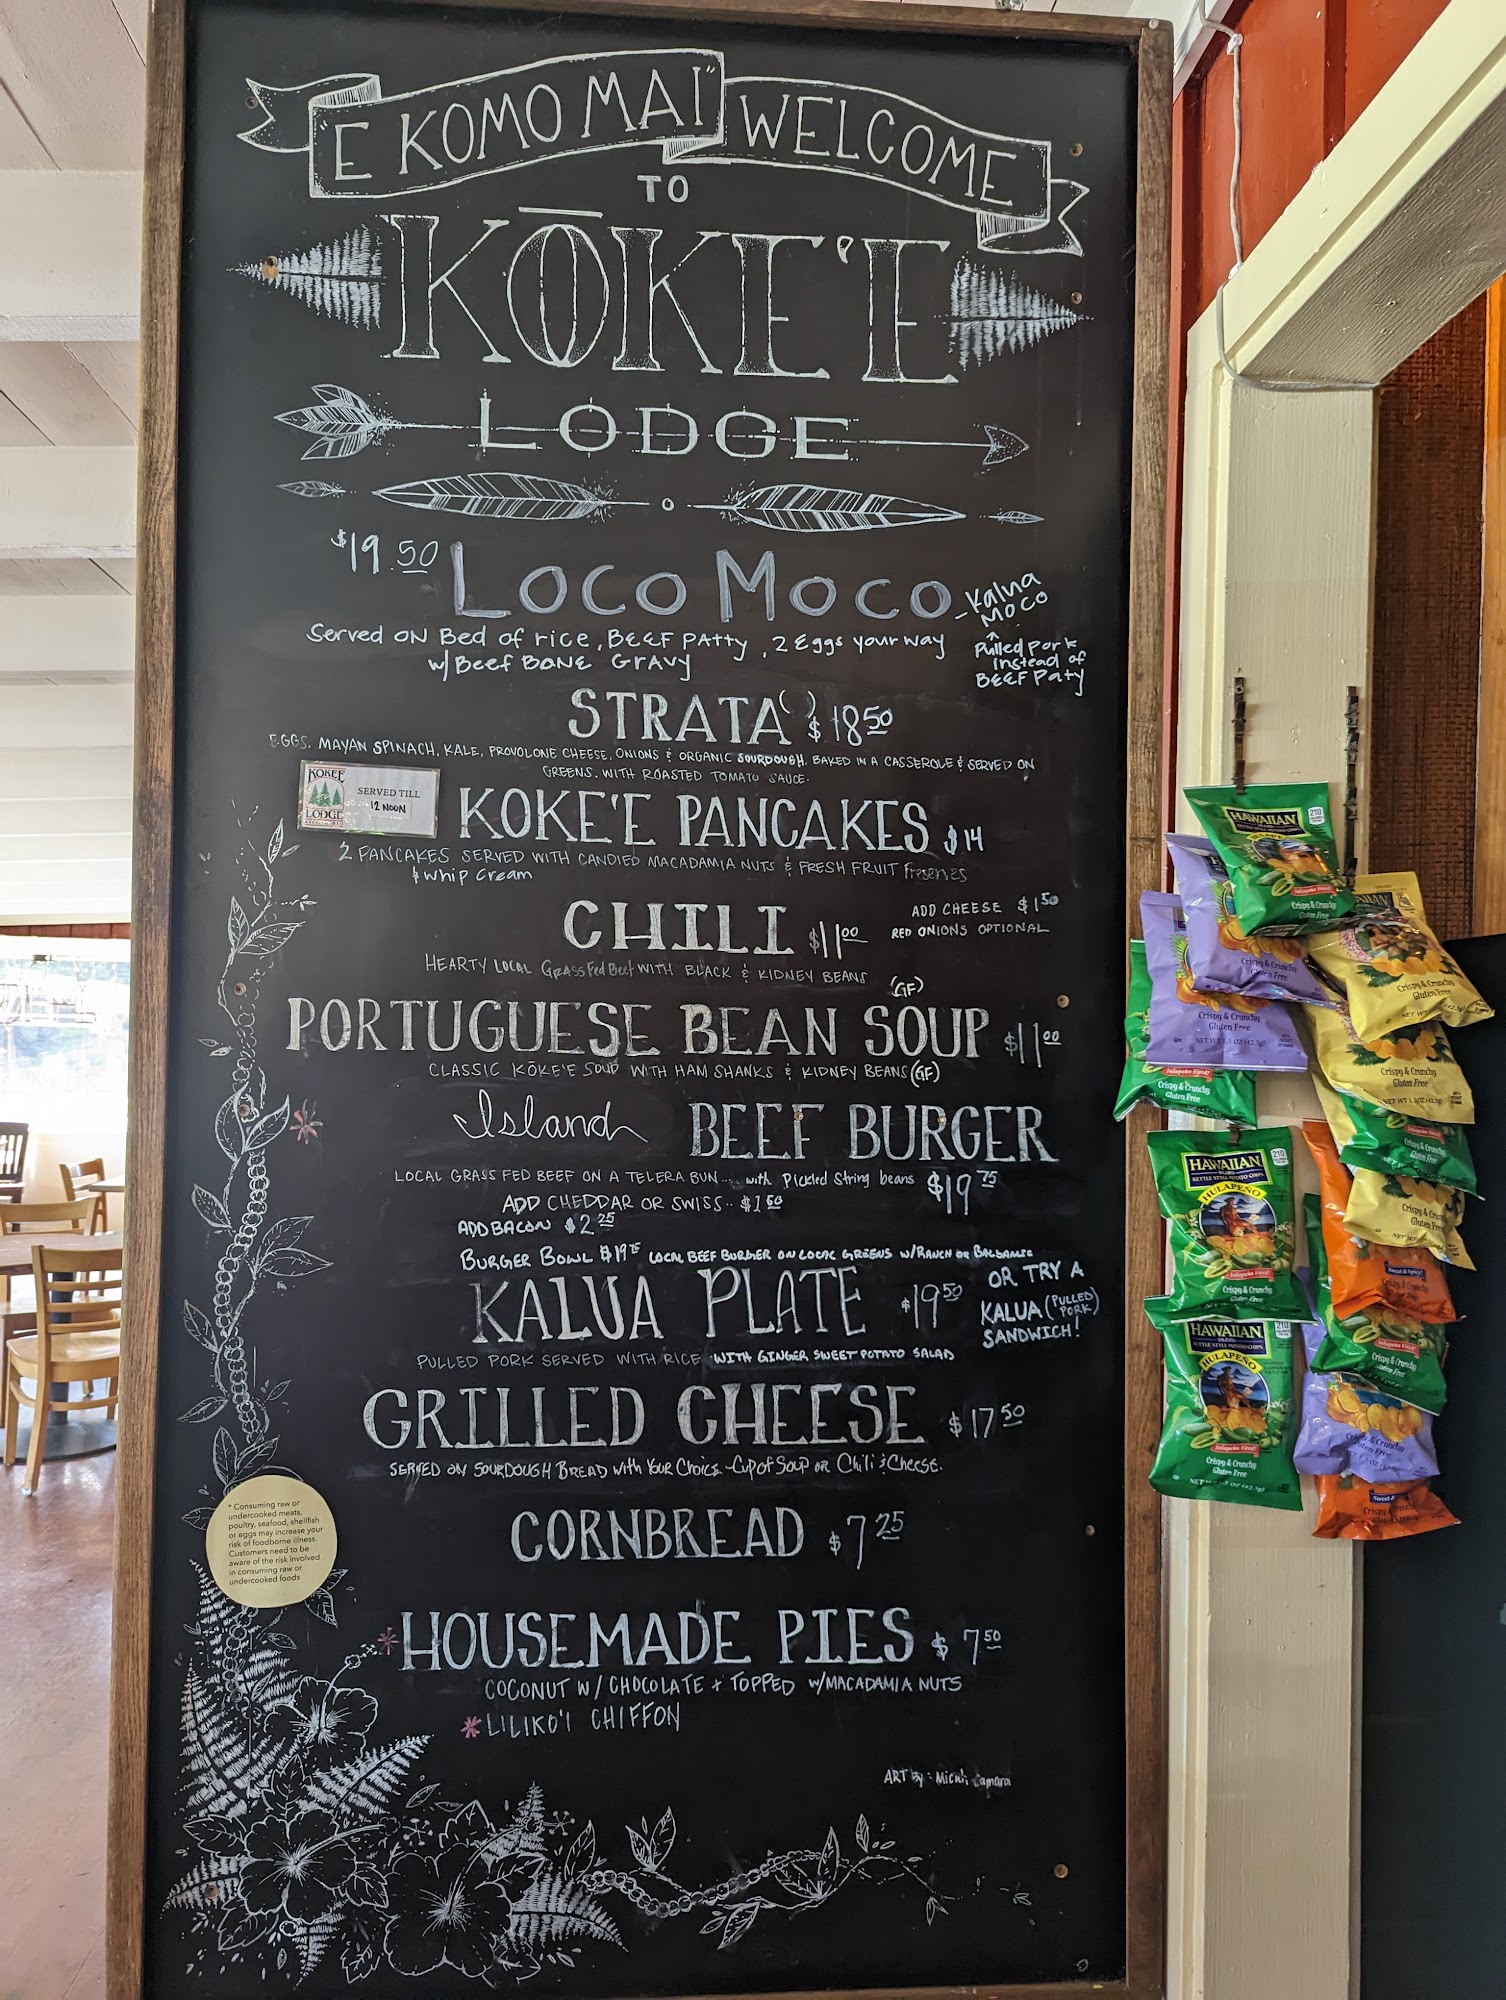 "E KOMO MAI" WELCOME
TO
KŌKE'E
LODGE
$19.50 LOCO MOCO - Kalua Moco
Served on Bed of rice, BEEF PATTY, 2 Eggs your way
w/ Beef BONE GRAVY
Pulled Pork
instead of
BEEF Paty
STRATA ( ) $18.50
EGGS, MAYAN SPINACH, KALE, PROVOLONE CHEESE, ONIONS & ORGANIC SOURDOUGH, BAKED IN A CASSEROLE & SERVED ON
GREENS. WITH ROASTED TOMATO SAUCE.
KOKEE
LODGE
SERVED TILL
12 NOON
KOKE'E PANCAKES $14
2 PANCAKES SERVED WITH CANDIED MACADAMIA NUTS & FRESH FRUIT Preserves
& Whip Cream
CHILI $11.00
ADD CHEESE $1.50
RED ONIONS OPTIONAL
HEARTY LOCAL Grass Fed Beef WITH BLACK & KIDNEY BEANS
(GF)
PORTUGUESE BEAN SOUP $11.00
CLASSIC KŌKE'E SOUP WITH HAM SHANKS & KIDNEY BEANS (GF)
* Island BEEF BURGER
LOCAL GRASS FED BEEF ON A TELERA BUN... with Pickled String beans $19.75
ADD CHEDDAR OR SWISS.. $1.50
ADD BACON $2.25
BURGER BOWL $19.75 LOCAL BEEF BURGER ON LOCAL GREENS W/RANCH OR BALSAMIC
KALUA PLATE $19.50
OR TRY A
KALUA (PULLED PORK)
SANDWICH!
PULLED PORK SERVED WITH RICE WITH GINGER SWEET POTATO SALAD
GRILLED CHEESE $17.50
SERVED ON SOURDOUGH BREAD with Your Choice - Cup of Soup or Chili & Cheese.
CORNBREAD $7.25
* Consuming raw or
undercooked meats,
poultry, seafood, shellfish
or eggs may increase your
risk of foodborne illness.
Customers need to be
aware of the risk involved
in consuming raw or
undercooked foods
* HOUSEMADE PIES $7.50
COCONUT W/ CHOCOLATE + TOPPED W/MACADAMIA NUTS
* LILIKO'I CHIFFON
ART by: Camara
HAWAIIAN
KETTLE STYLE POTATO CHIPS
Jalapeño Fired!
Crispy & Crunchy
Gluten Free
Crispy & Crunchy
Gluten Free
Crispy & Crunchy
Gluten Free
Crispy & Crunchy
Gluten Free
NET WT 1.5 OZ (42.5g)
Jalapeño Fired!
Crispy & Crunchy
Gluten Free
Crispy & Crunchy
Gluten Free
HAWAIIAN
BRAND
KETTLE STYLE POTATO CHIPS
JALAPEÑO
Jalapeño Fired!
Crispy & Crunchy
Gluten Free
Sweet & Spicy!
Crispy & Crunchy
HAWAIIAN
BRAND
KETTLE STYLE POTATO CHIPS
JALAPEÑO
Jalapeño Fired!
Crispy & Crunchy
Gluten Free